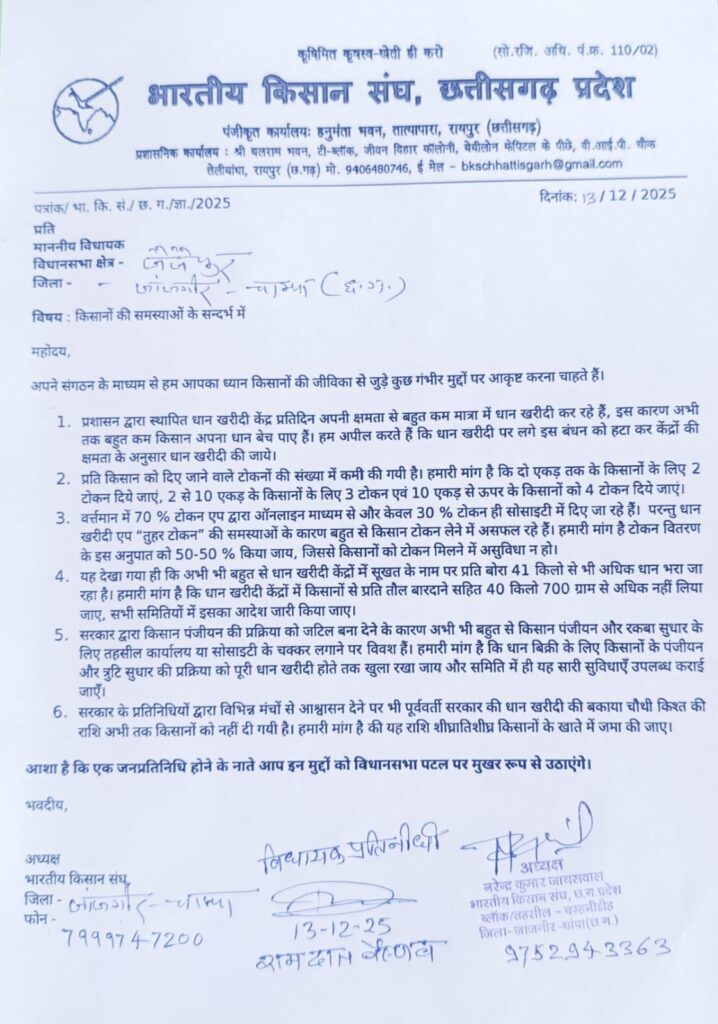 कृषिमित कृषस्व-खेती ही करो (सो.रजि. अधि. पं.क्र. 110/02)
भारतीय किसान संघ, छत्तीसगढ़ प्रदेश
पंजीकृत कार्यालयः हनुमंता भवन, तात्यापारा, रायपुर (छत्तीसगढ़)
प्रशासनिक कार्यालय : श्री बलराम भवन, टी-ब्लॉक, जीवन विहार कॉलोनी, बेबीलोन केपिटल के पीछे, वी.आई.पी. चौक
तेलीबांधा, रायपुर (छ.गढ़) मो. 9406480746, ई मेल – bkschhattisgarh@gmail.com
पत्रांक/ भा. कि. सं./ छ. ग./ज्ञा./2025 दिनांक: 13 / 12 / 2025
प्रति
माननीय विधायक
विधानसभा क्षेत्र -
जिला - - जांजगीर - चाम्पा (छ.ग.)
विषय : किसानों की समस्याओं के सन्दर्भ में
महोदय,
अपने संगठन के माध्यम से हम आपका ध्यान किसानों की जीविका से जुड़े कुछ गंभीर मुद्दों पर आकृष्ट करना चाहते हैं।
1. प्रशासन द्वारा स्थापित धान खरीदी केंद्र प्रतिदिन अपनी क्षमता से बहुत कम मात्रा में धान खरीदी कर रहे हैं, इस कारण अभी
तक बहुत कम किसान अपना धान बेच पाए हैं। हम अपील करते हैं कि धान खरीदी पर लगे इस बंधन को हटा कर केंद्रों की
क्षमता के अनुसार धान खरीदी की जाये।
2. प्रति किसान को दिए जाने वाले टोकनों की संख्या में कमी की गयी है। हमारी मांग है कि दो एकड़ तक के किसानों के लिए 2
टोकन दिये जाएं, 2 से 10 एकड़ के किसानों के लिए 3 टोकन एवं 10 एकड़ से ऊपर के किसानों को 4 टोकन दिए जाएं।
3. वर्त्तमान में 70 % टोकन एप द्वारा ऑनलाइन माध्यम से और केवल 30 % टोकन ही सोसाइटी में दिए जा रहे हैं। परन्तु धान
खरीदी एप “तुहर टोकन” की समस्याओं के कारण बहुत से किसान टोकन लेने में असफल रहे हैं। हमारी मांग है टोकन वितरण
के इस अनुपात को 50-50 % किया जाय, जिससे किसानों को टोकन मिलने में असुविधा न हो।
4. यह देखा गया ही कि अभी भी बहुत से धान खरीदी केंद्रों में सूखत के नाम पर प्रति बोरा 41 किलो से भी अधिक धान भरा जा
रहा है। हमारी मांग है कि धान खरीदी केंद्रों में किसानों से प्रति तौल बारदाने सहित 40 किलो 700 ग्राम से अधिक नहीं लिया
जाए, सभी समितियों में इसका आदेश जारी किया जाए।
5. सरकार द्वारा किसान पंजीयन की प्रक्रिया को जटिल बना देने के कारण अभी भी बहुत से किसान पंजीयन और रकबा सुधार के
लिए तहसील कार्यालय या सोसाइटी के चक्कर लगाने पर विवश हैं। हमारी मांग है कि धान बिक्री के लिए किसानों के पंजीयन
और त्रुटि सुधार की प्रक्रिया को पूरी धान खरीदी होते तक खुला रखा जाय और समिति में ही यह सारी सुविधाएँ उपलब्ध कराई
जाएँ।
6. सरकार के प्रतिनिधियों द्वारा विभिन्न मंचों से आश्वासन देने पर भी पूर्ववर्ती सरकार की धान खरीदी की बकाया चौथी किश्त की
राशि अभी तक किसानों को नहीं दी गयी है। हमारी मांग है की यह राशि शीघ्रातिशीघ्र किसानों के खाते में जमा की जाए।
आशा है कि एक जनप्रतिनिधि होने के नाते आप इन मुद्दों को विधानसभा पटल पर मुखर रूप से उठाएंगे।
भवदीय,
विधायक प्रतिनीधी
अध्यक्ष
भारतीय किसान संघ,
जिला - जांजगीर - चाम्पा
फोन -
7999747200
13-12-25
अध्यक्ष
नरेन्द्र कुमार जायसवाल
भारतीय किसान संघ, छ.ग.प्रदेश
ब्लॉक/तहसील - बम्हनीडीह
जिला-जांजगीर-चांपा(छ.ग.)
9752943363